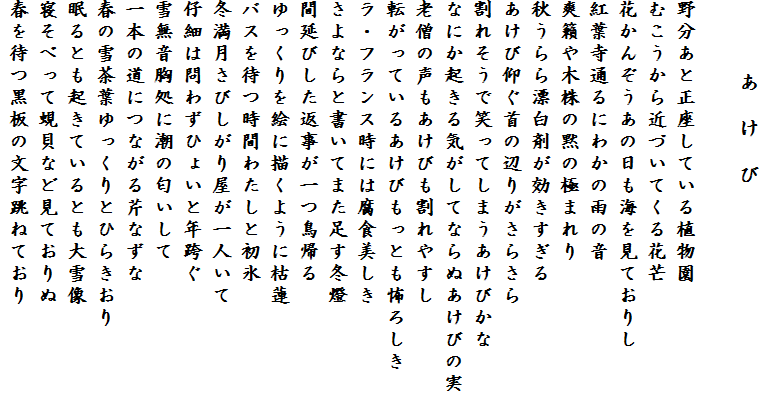 あけび
野分あと正座している植物園
むこうから近づいてくる花芒
花かんぞうあの日も海を見ておりし
紅葉寺通るにわかの雨の音
爽籟や木株の黙の極まれり
秋うらら漂白剤が効きすぎる
あけび仰ぐ首の辺りがさらさら
割れそうで笑ってしまうあけびかな
なにか起きる気がしてならぬあけびの実
老僧の声もあけびも割れやすし
転がっているあけびもっとも怖ろしき
ラ・フランス時には腐食美しき
さよならと書いてまた足す冬燈
間延びした返事が一つ鳥帰る
ゆっくりを絵に描くように枯蓮
バスを待つ時間わたしと初氷
冬満月さびしがり屋が一人いて
仔細は問わずひょいと年跨ぐ
雪無音胸処に潮の匂いして
一本の道につながる芹なずな
春の雪茶葉ゆっくりとひらきおり
眠るとも起きているとも大雪像
寝そべって蜆貝など見ておりぬ
春を待つ黒板の文字跳ねており